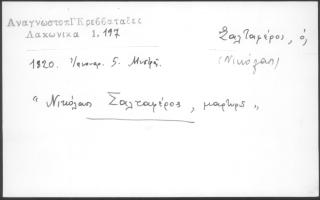 Αναγνωστοπ Γκρεββαταδες
Λακωνικα 1. 197
Σαλταμέρος, ὁ
(Νικόλαος)
1820. Ἰανουαρ. 5. Μιστρᾶ.
"Νικόλαος Σαλταμέρος, μαρτυρῶ"